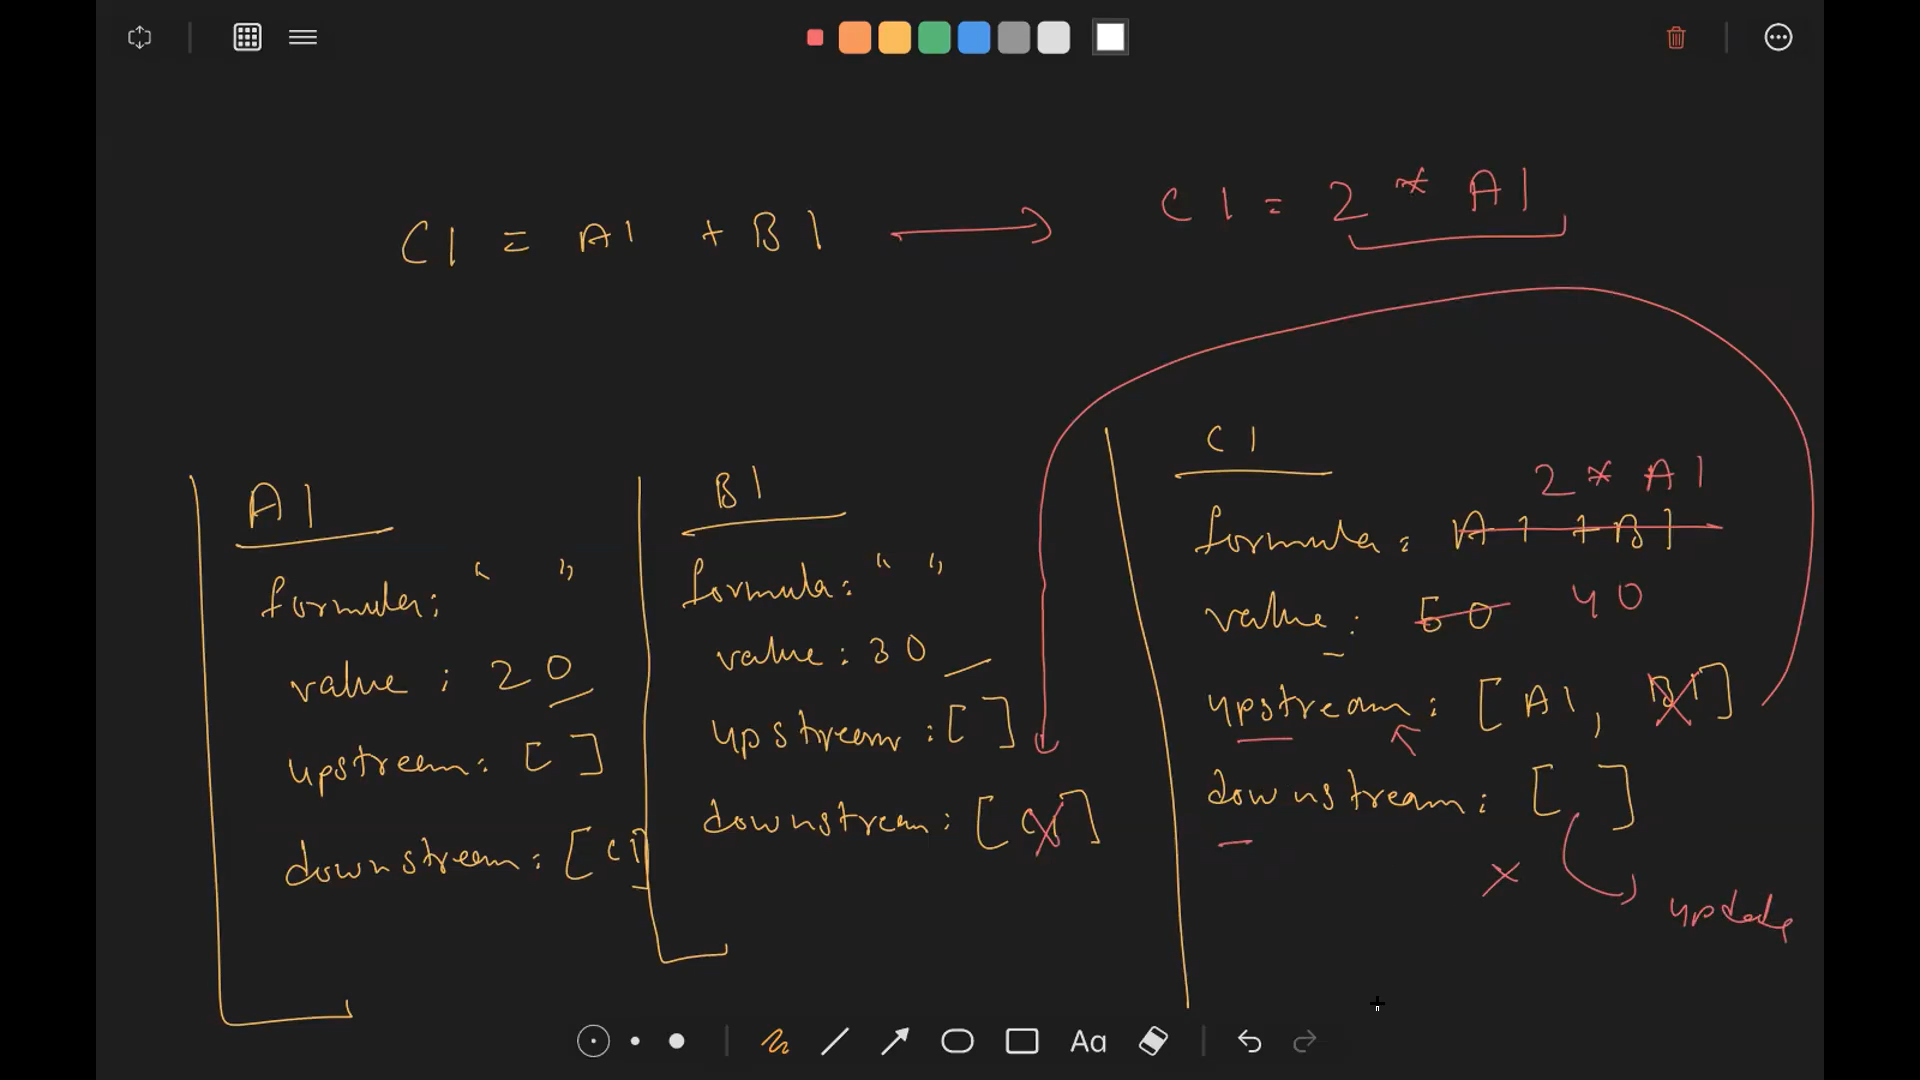 C1 = A1 + B1
C1 = 2 * A1
A1
formula: " "
value : 20
upstream: [ ]
downstream: [C1]
B1
formula: " "
value : 30
upstream : [ ]
downstream : [C1]
C1
2 * A1
formula : A1 + B1
value : 50 40
upstream : [A1, B1]
downstream : [ ]
x
update
Aa